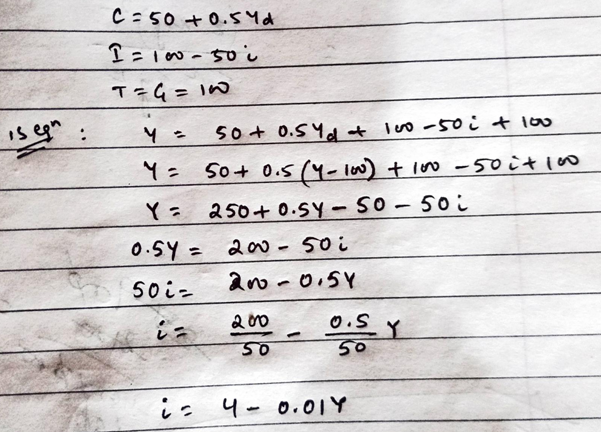 C = 50 + 0.5Yd
I = 100 - 50i
T = G = 100
IS eqn : Y = 50 + 0.5Yd + 100 - 50i + 100
Y = 50 + 0.5(Y-100) + 100 - 50i + 100
Y = 250 + 0.5Y - 50 - 50i
0.5Y = 200 - 50i
50i = 200 - 0.5Y
i = 200/50 - 0.5/50 Y
i = 4 - 0.01Y